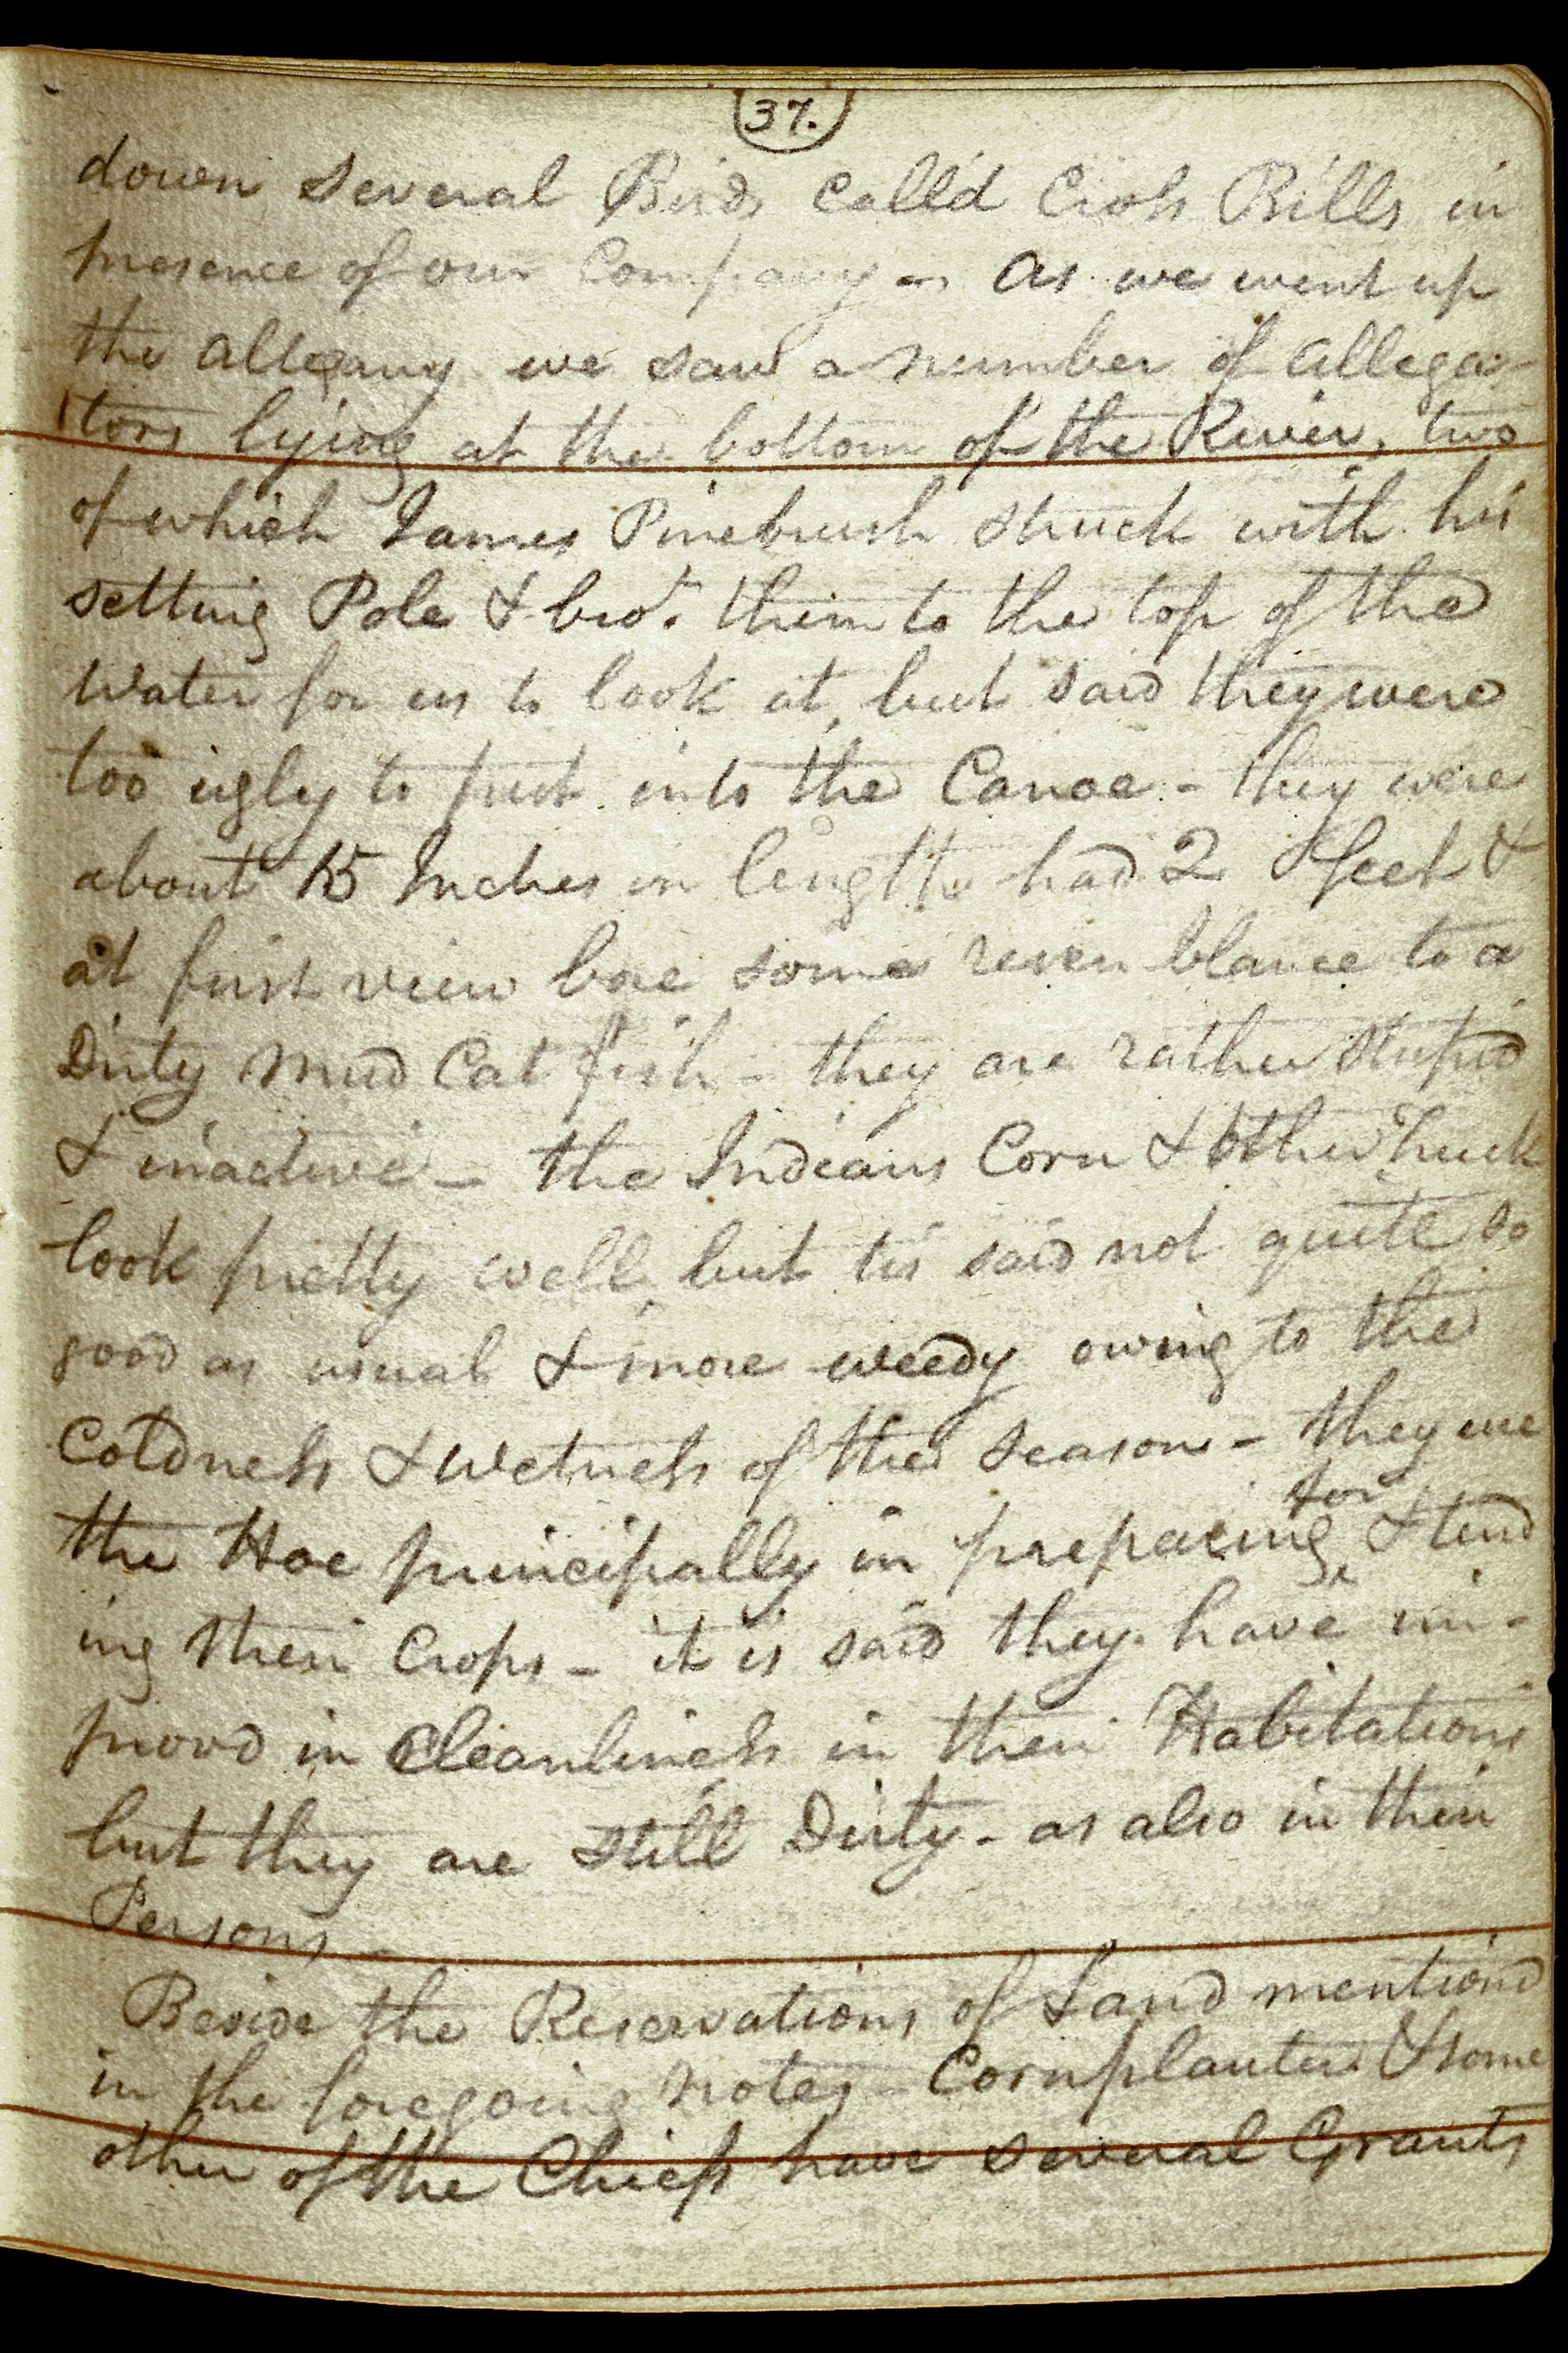 37.
down several Birds calld Cross Bills in
presence of our Company - as we went up
the allegany we saw a number of allega-
tors lying at the bottom of the River, two
of which James Pinebrush struck with his
setting Pole & bro.t them to the top of the
Water for us to look at, but said they were
too ugly to put into the Canoe - they were
about 15 Inches in length had 2 feet &
at first view bore some resemblance to a
Dirty Mud Cat fish - they are rather stupid
& inactive - the Indians Corn & other truck
look pretty well, but tis said not quite so
good as usual & more weedy owing to the
Coldness & Wetness of the season - they use
the Hoe principally in preparing for & tend
ing their Crops - it is said they have im-
provd in Cleanliness in their Habitations
but they are still Dirty - as also in their
Persons -
Beside the Reservations of Land mentiond
in the foregoing notes - Cornplanter & some
other of the Chiefs have several Grants